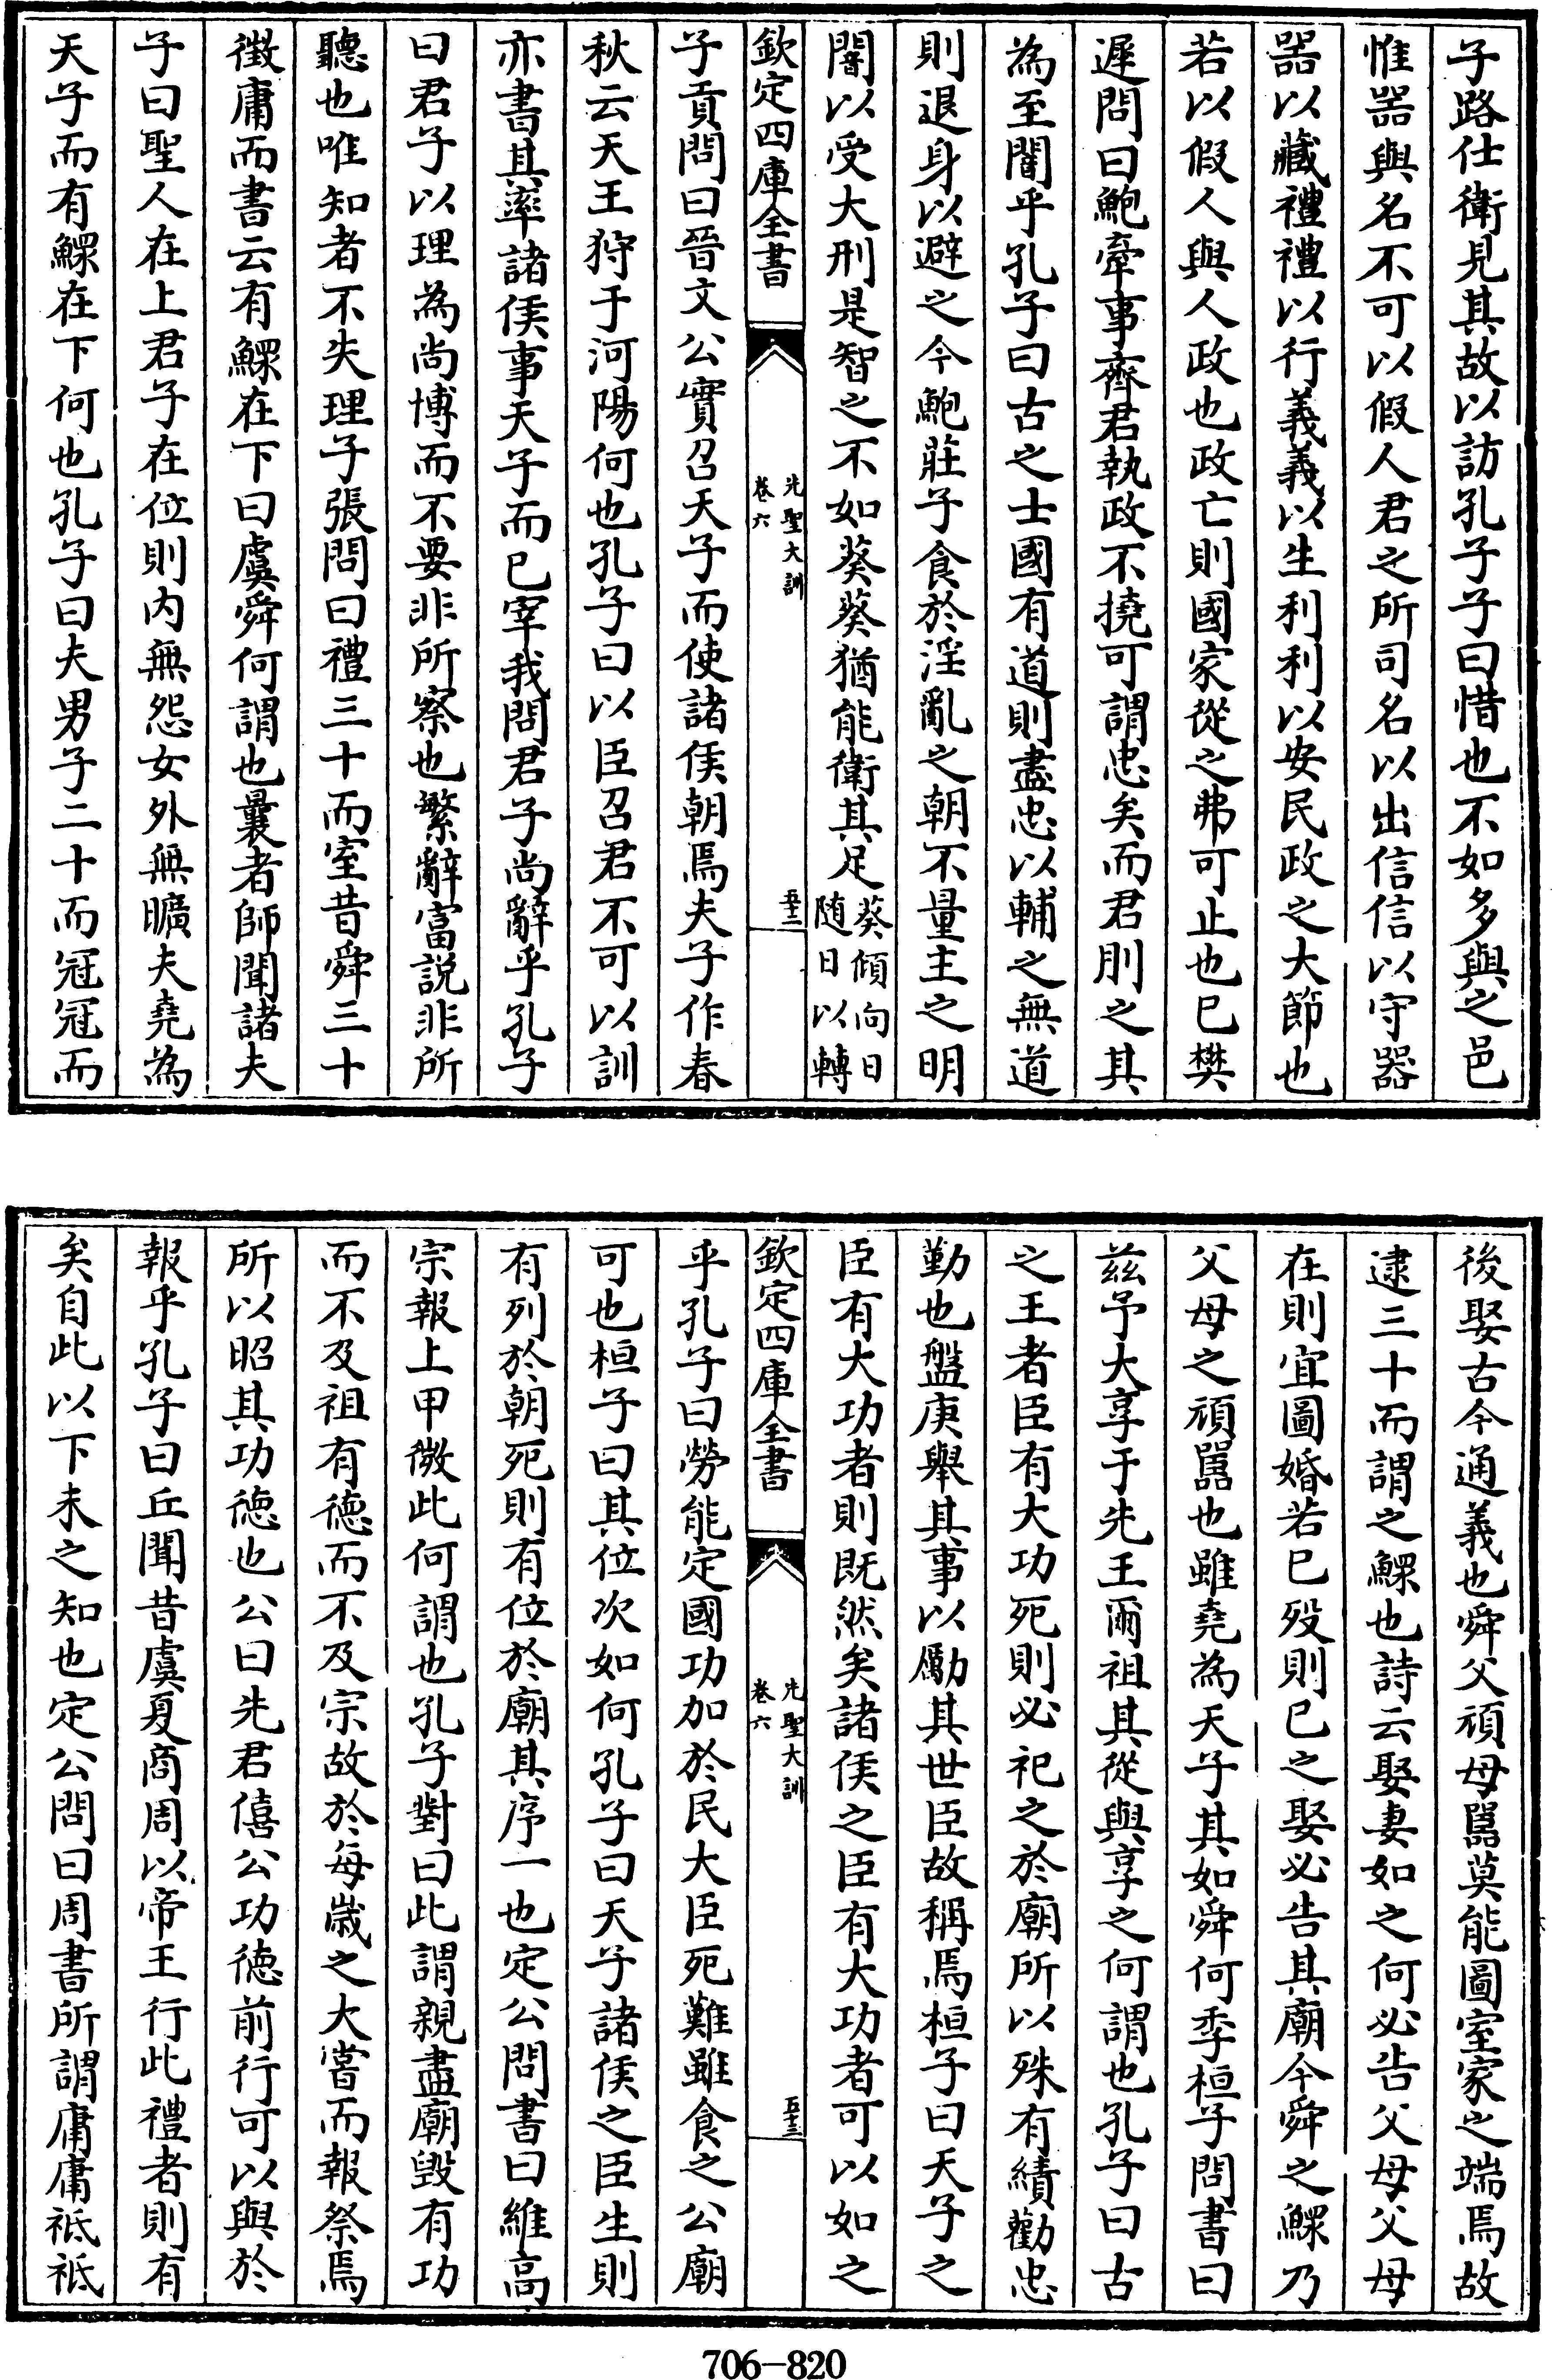 子路仕衛見其故以訪孔子子曰惜也不如多與之邑
惟器與名不可以假人君之所司名以出信信以守器
器以藏禮禮以行義義以生利利以安民政之大節也
若以假人與人政也政亡則國家從之弗可止也已樊
遲問曰鮑牽事齊君執政不撓可謂忠矣而君刖之其
為至闇乎孔子曰古之士國有道則盡忠以輔之無道
則退身以避之今鮑莊子食於淫亂之朝不量主之明
闇以受大刑是智之不如葵葵猶能衛其足葵傾向日
随日以轉
欽定四庫全書
先聖大訓
卷六
五十二
子貢問曰晉文公實召天子而使諸侯朝焉夫子作春
秋云天王狩于河陽何也孔子曰以臣召君不可以訓
亦書其率諸侯事天子而已宰我問君子尚辭乎孔子
曰君子以理為尚博而不要非所察也繁辭富說非所
聽也唯知者不失理子張問曰禮三十而室昔舜三十
徵庸而書云有鰥在下曰虞舜何謂也曩者師聞諸夫
子曰聖人在上君子在位則内無怨女外無曠夫堯為
天子而有鰥在下何也孔子曰夫男子二十而冠冠而
後娶古今通義也舜父頑母嚚莫能圖室家之端焉故
逮三十而謂之鰥也詩云娶妻如之何必告父母父母
在則宜圖婚若已殁則已之娶必告其廟今舜之鰥乃
父母之頑嚚也雖堯為天子其如舜何季桓子問書曰
兹予大享于先王爾祖其從與享之何謂也孔子曰古
之王者臣有大功死則必祀之於廟所以殊有績勸忠
勤也盤庚舉其事以勵其世臣故稱焉桓子曰天子之
臣有大功者則既然矣諸侯之臣有大功者可以如之
欽定四庫全書
先聖大訓
卷六
五十三
乎孔子曰勞能定國功加於民大臣死難雖食之公廟
可也桓子曰其位次如何孔子曰天子諸侯之臣生則
有列於朝死則有位於廟其序一也定公問書曰維高
宗報上甲微此何謂也孔子對曰此謂親盡廟毁有功
而不及祖有德而不及宗故於每嵗之大嘗而報祭焉
所以昭其功德也公曰先君僖公功德前行可以與於
報乎孔子曰丘聞昔虞夏商周以帝王行此禮者則有
矣自此以下未之知也定公問曰周書所謂庸庸祗祗
706-820